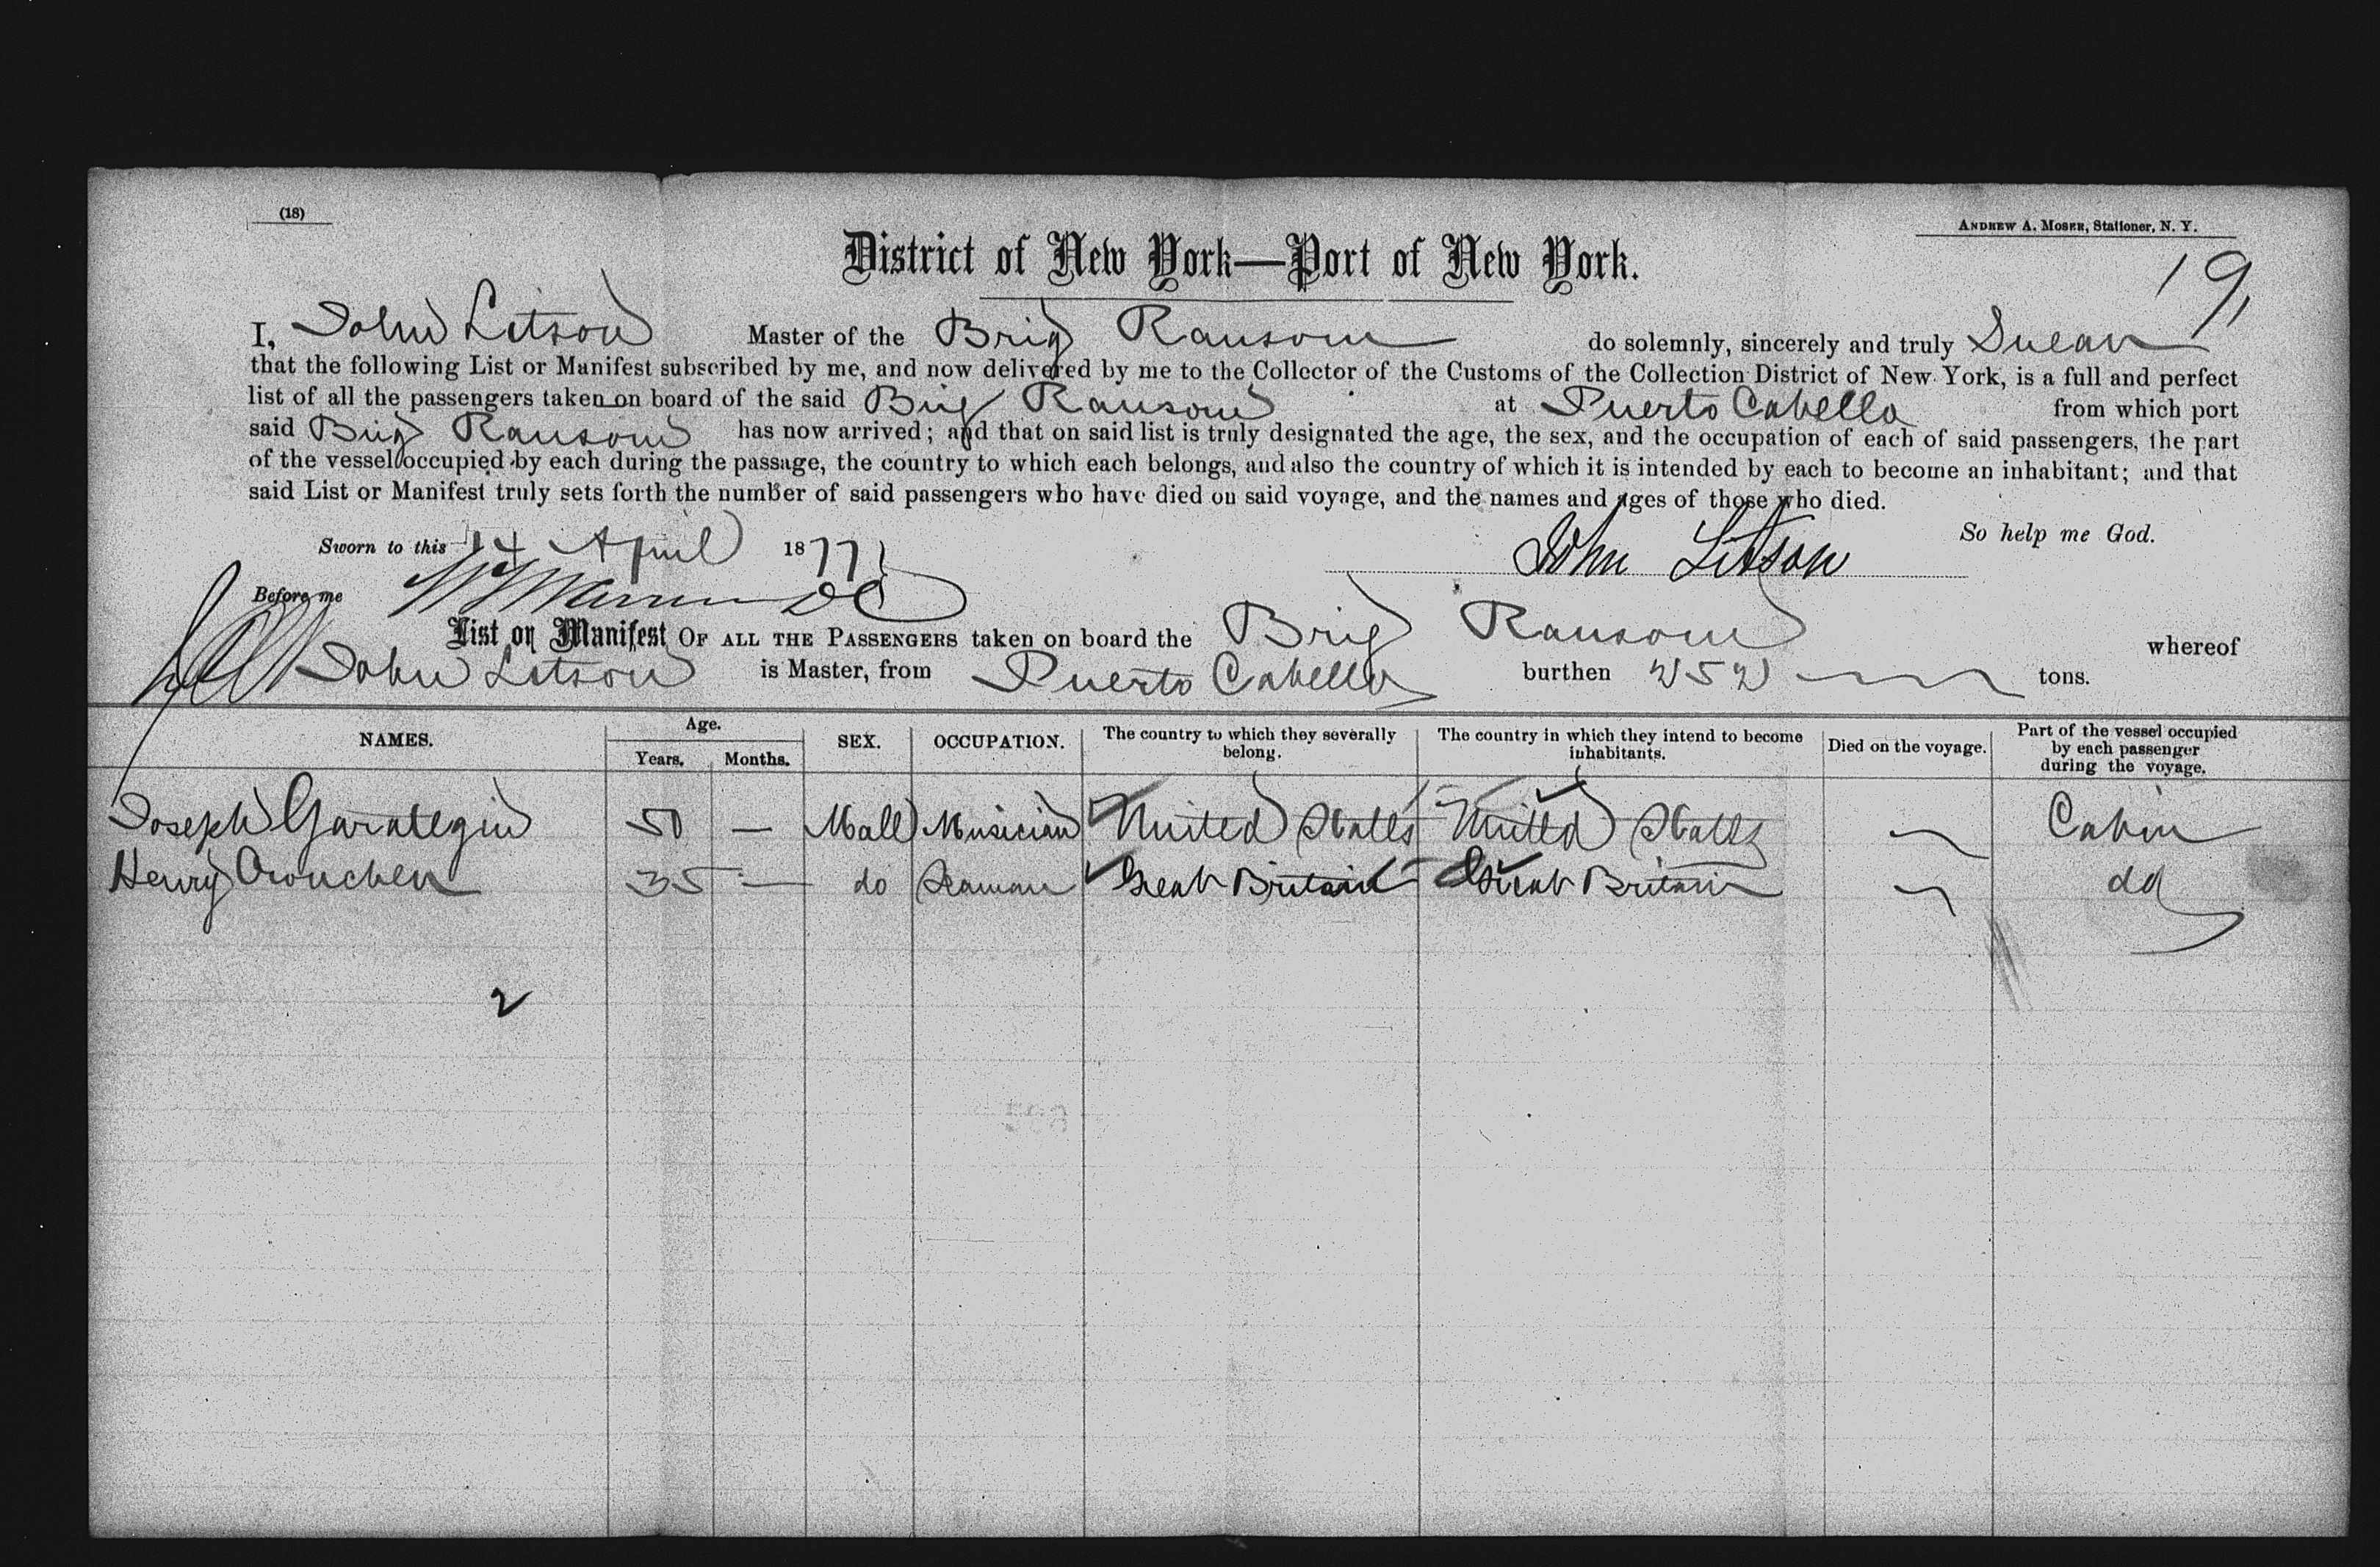 (18)
ANDREW A. MOSER, Stationer, N. Y.
District of New York—Port of New York.
191
I, John Letson Master of the Brig Ransom do solemnly, sincerely and truly Swear
that the following List or Manifest subscribed by me, and now delivered by me to the Collector of the Customs of the Collection District of New York, is a full and perfect
list of all the passengers taken on board of the said Brig Ransom at Puerto Cabello from which port
said Brig Ransom has now arrived; and that on said list is truly designated the age, the sex, and the occupation of each of said passengers, the part
of the vessel occupied by each during the passage, the country to which each belongs, and also the country of which it is intended by each to become an inhabitant; and that
said List or Manifest truly sets forth the number of said passengers who have died on said voyage, and the names and ages of those who died.
So help me God.
Sworn to this 14 April 1877 John Letson
Before me
List or Manifest OF ALL THE PASSENGERS taken on board the Brig Ransom whereof
John Letson is Master, from Puerto Cabello burthen 252 tons.
NAMES. Age. Years. Months. SEX. OCCUPATION. The country to which they severally belong. The country in which they intend to become inhabitants. Died on the voyage. Part of the vessel occupied by each passenger during the voyage.
Joseph Garategin 50 — Male Musician United States United States Cabin
Henry Crouchen 35 — do Seaman Great Britain Great Britain do
2